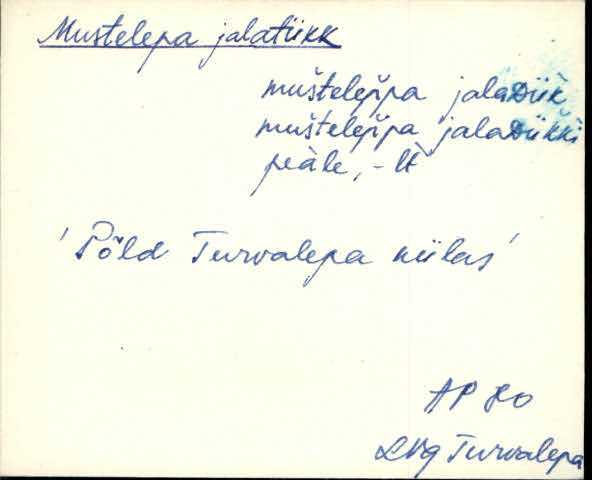 Mustelepa jalatükk
muštelep̆pa jalaDük
muštelep̆pa jalaDük̆ki
peàle, - lt
'Põld Turvalepa külas'
AP 80
LNg Turvalepa